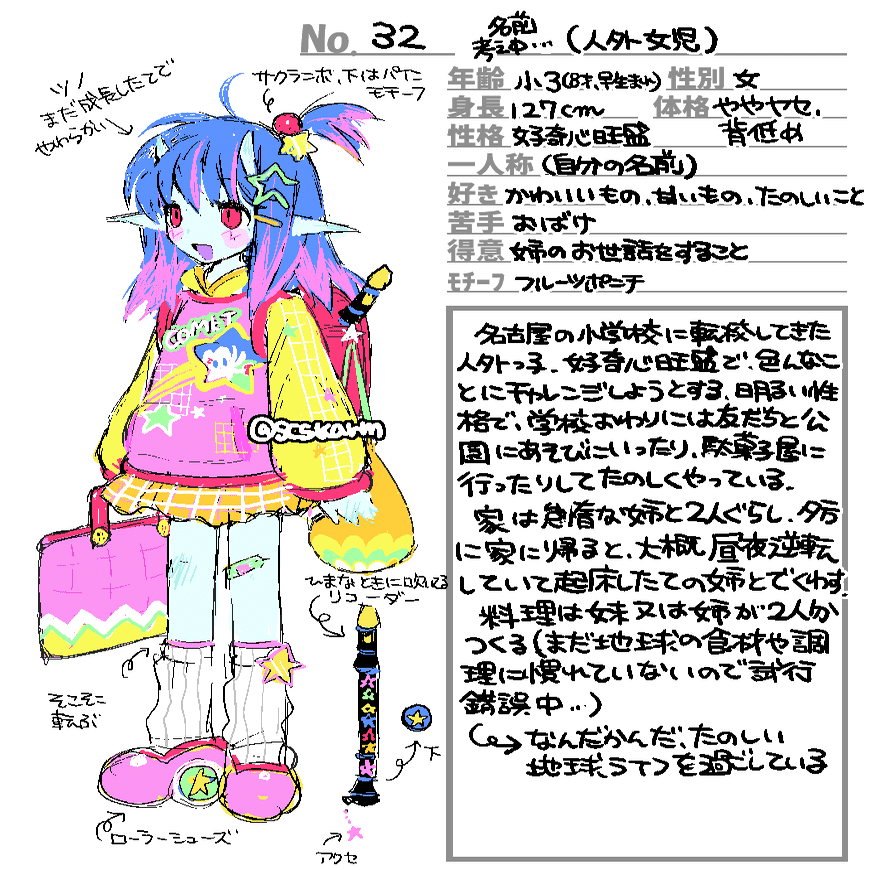 No. 32
名前
考え中…(人外女児)
年齢 小3(8才、早生まれ) 性別 女
身長 127cm 体格 ややヤセ、
背低め
性格 好奇心旺盛
一人称 (自分の名前)
好き かわいいもの、甘いもの、たのしいこと
苦手 おばけ
得意 姉のお世話をすること
モチーフ フルーツポンチ
ツノ
まだ成長したてで
やわらかい
サクランボ、下はパイン
モチーフ
COMET
@scskawn
ひまなときに吹いてる
リコーダー
下
アクセ
そこそこ
転ぶ
ローラーシューズ
名古屋の小学校に転校してきた
人外っ子。好奇心旺盛で、色んなこ
とにチャレンジしようとする、明るい性
格で、学校おわりには友だちと公
園にあそびにいったり、駄菓子屋に
行ったりしてたのしくやっている。
家は怠惰な姉と2人ぐらし、夕方
に家に帰ると、大概昼夜逆転
していて起床したての姉とでくわす。
料理は妹又は姉が2人分
つくる(まだ地球の食材や調
理に慣れていないので試行
錯誤中…)
なんだかんだ、たのしい
地球ライフを過ごしている